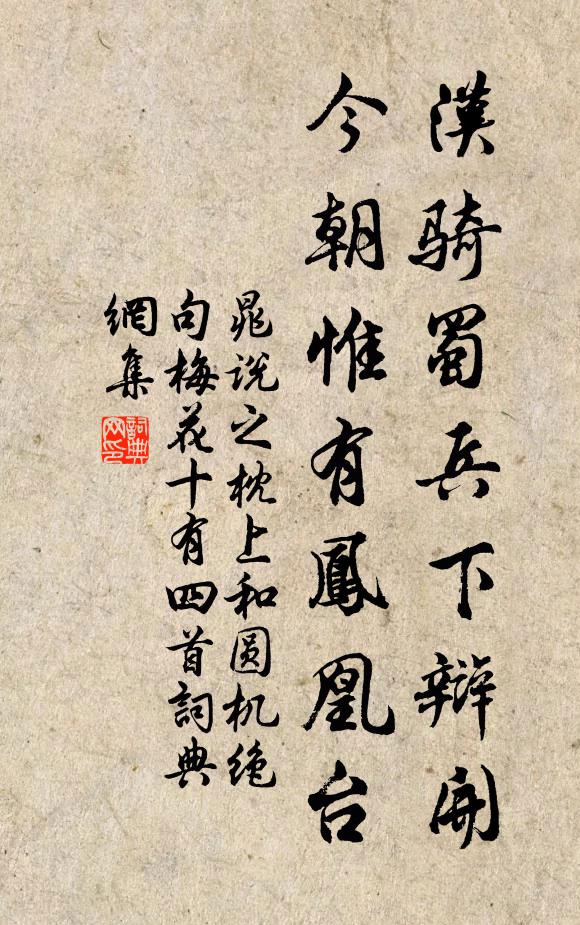 漢騎蜀兵下辯開
今朝惟有鳳凰台
晁说之枕上和圆机绝
句梅花十有四首詞典
網集
詞典
网印